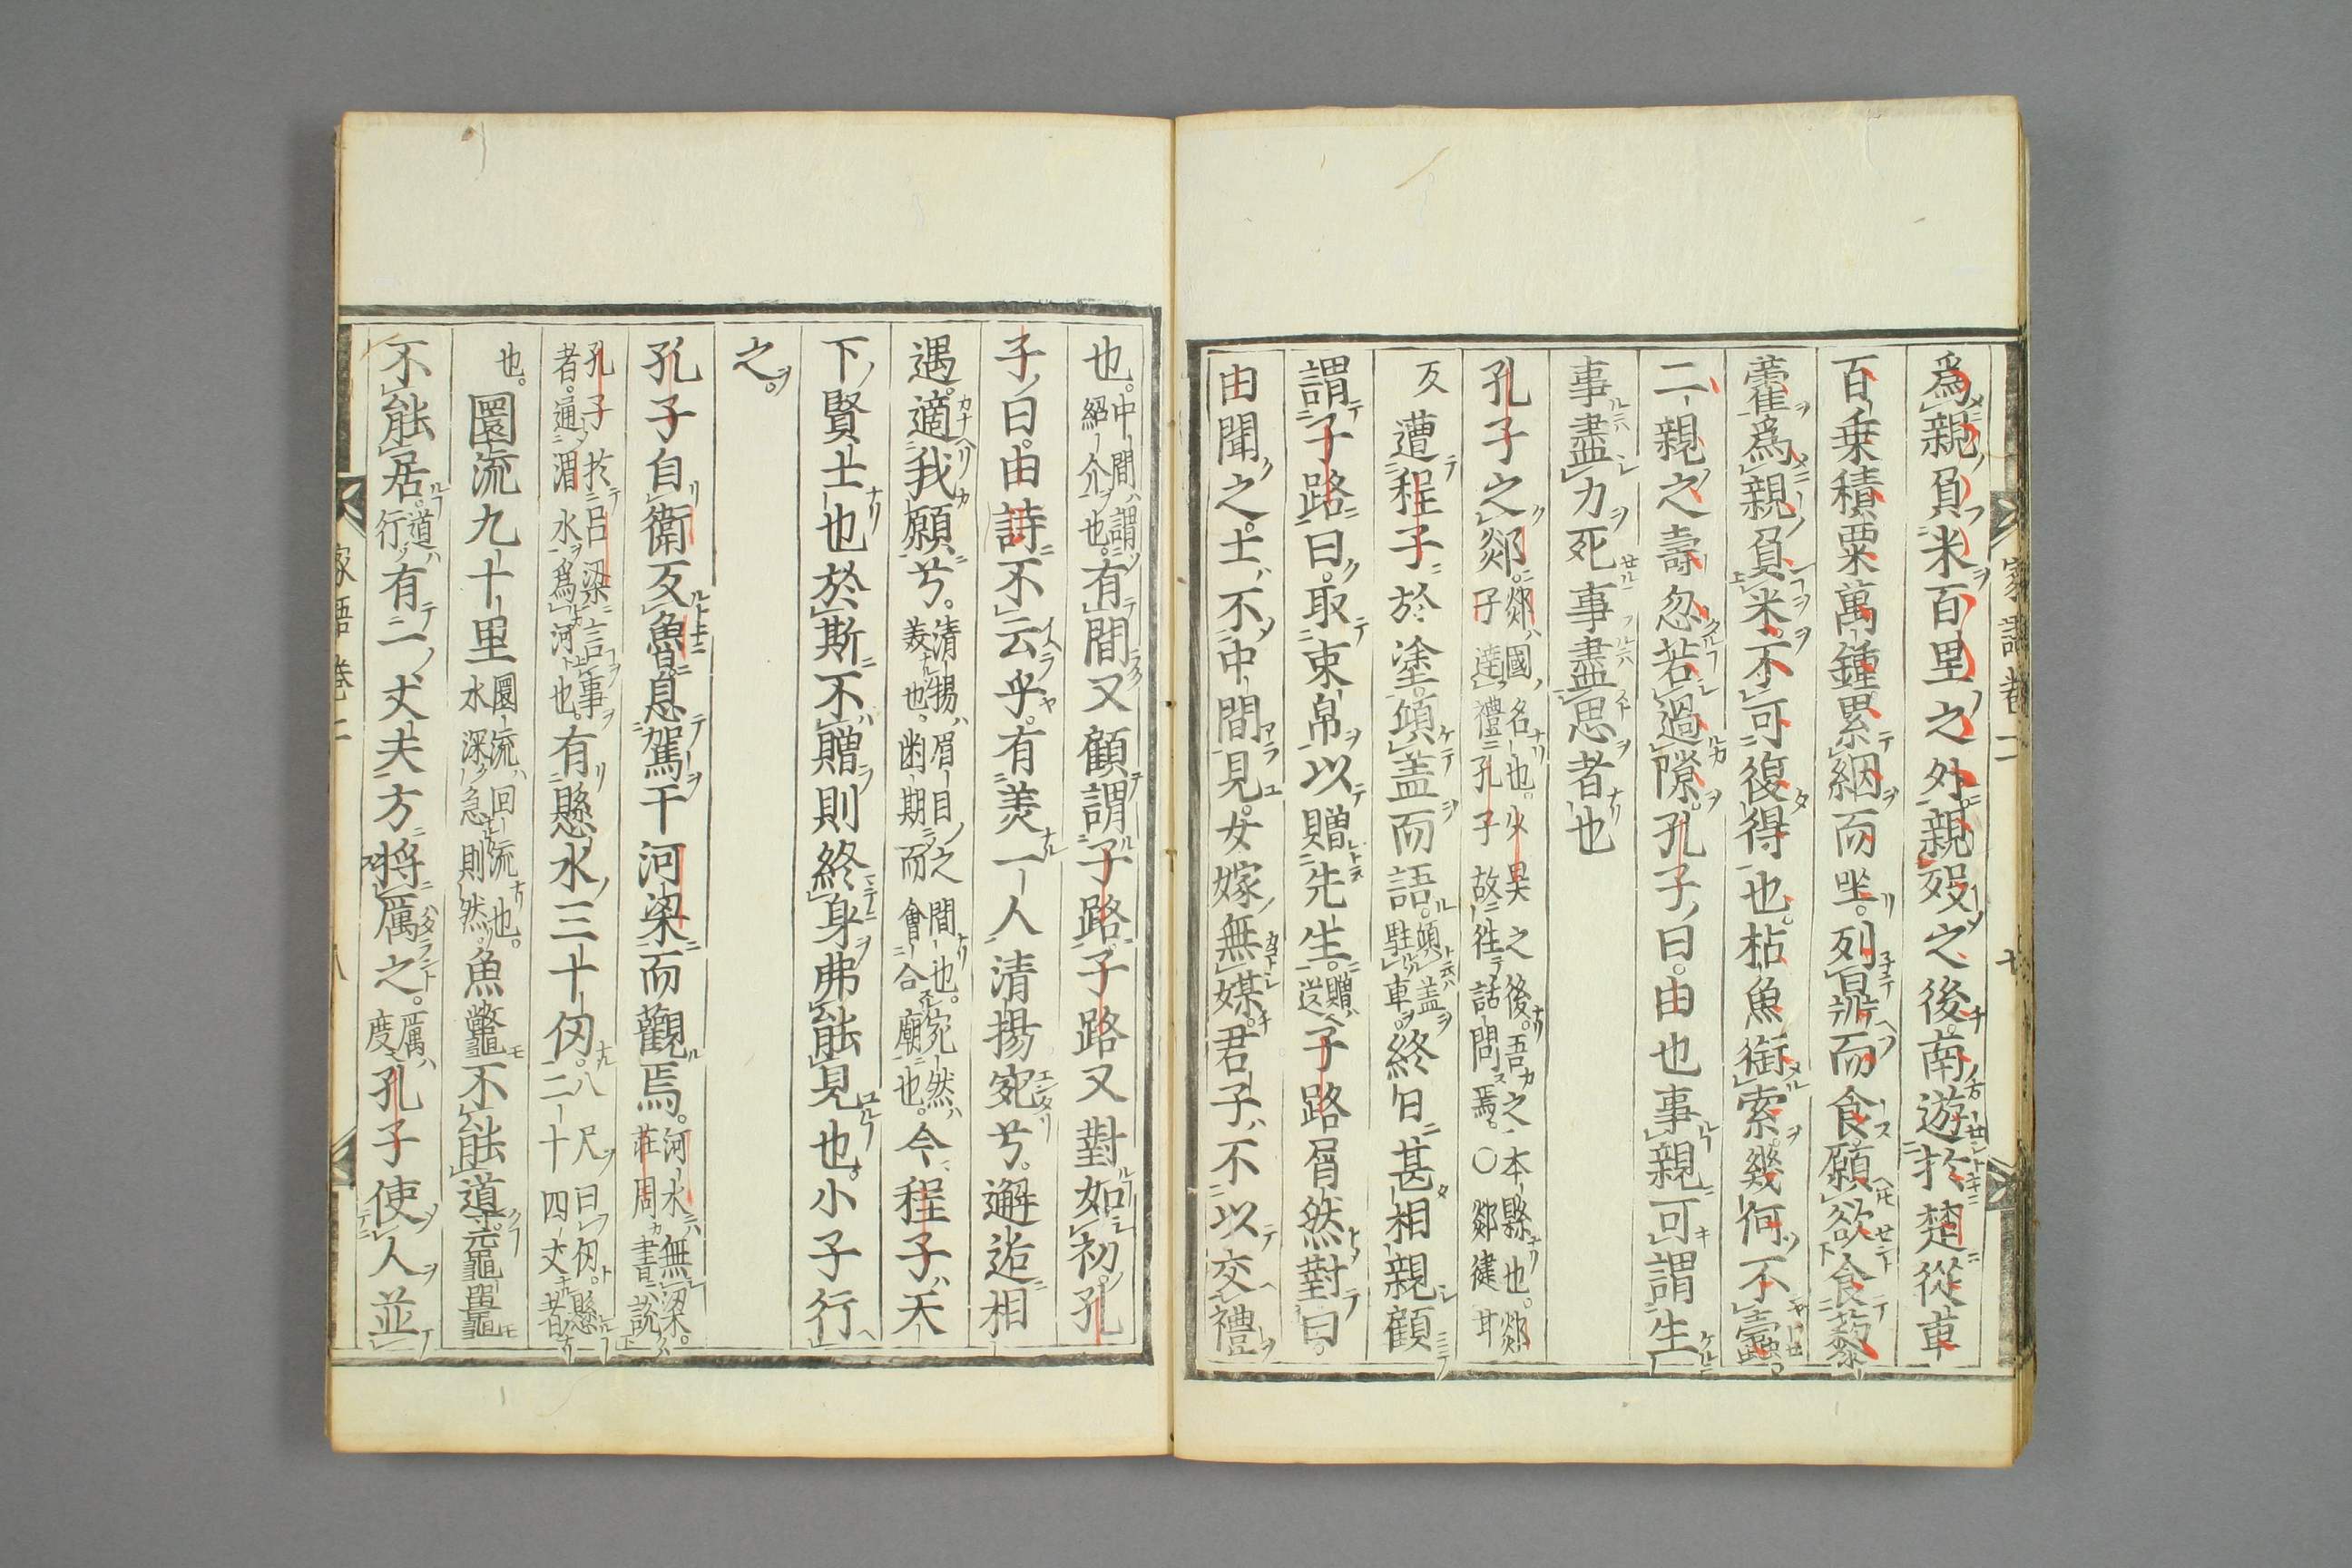 爲親負米百里之外親歿之後南遊於楚從車
百乗積粟萬鍾累絪而坐列鼎而食願欲食藜
藿爲親負米不可復得也枯魚銜索幾何不蠹
二親之壽忽若過隙孔子曰由也事親可謂生
事盡力死事盡思者也
孔子之郯郯國名也少昊之後吾之本縣也郯子達禮孔子故徃諮問焉〇郯徤甘
反遭程子於塗傾盖而語傾盖駐車終日甚相親顧
謂子路曰取束帛以贈先生贈送子路屑然對曰
由聞之士不中間見女嫁無媒君子不以交禮
也中間謂紹介也有間又顧謂子路子路又對如初孔
子曰由詩不云乎有羙一人清揚宛兮邂逅相
遇適我願兮清揚眉目之間也宛然羙也幽期而會合廟也今程子天
下賢士也於斯不贈則終身弗能見也小子行
之
孔子自衛反魯息駕于河梁而觀焉河水無梁莊周書說
孔子於呂梁言事者通渭水爲河也有懸水三十仞八尺曰仞懸二十四丈者
也圜流九十里圜流回流也水深急則然魚鼈不能道黿鼉
不能居道行有一丈夫方将厲之厲度孔子使人並
家語巻二
家語巻二
八